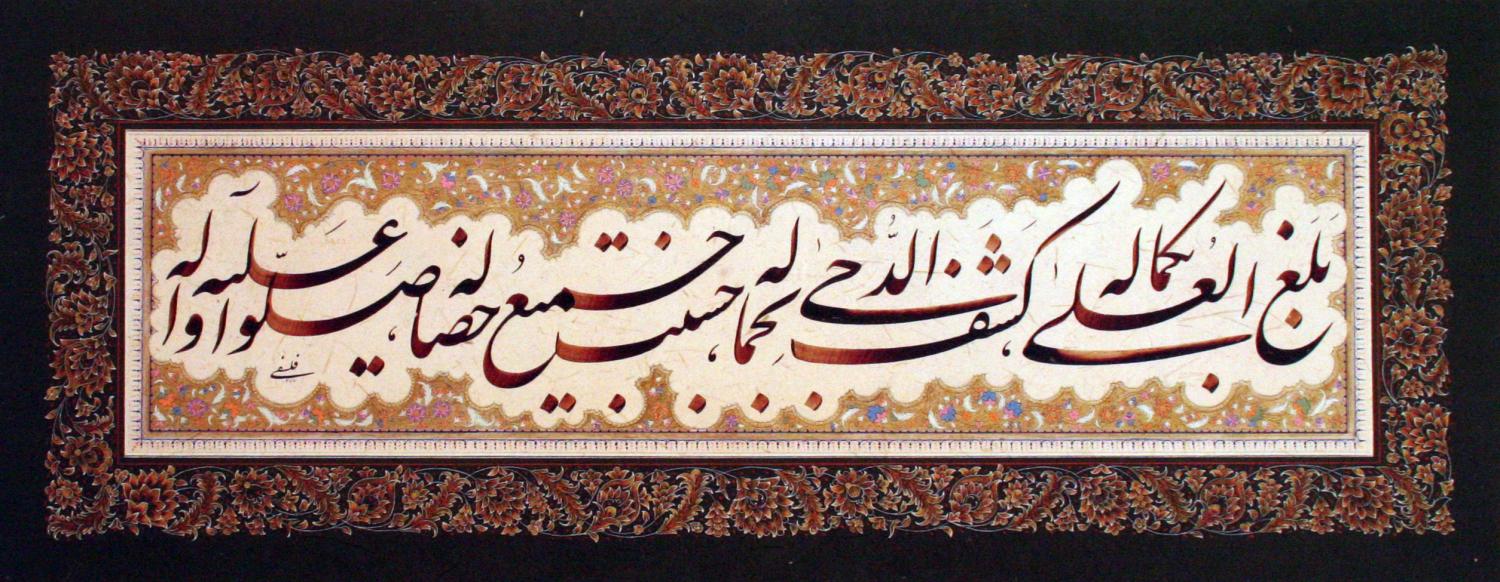 بلغ العلی بکماله کشف الدجی بجماله حسنت جمیع خصاله صلوا علیه و آله
فلسفی